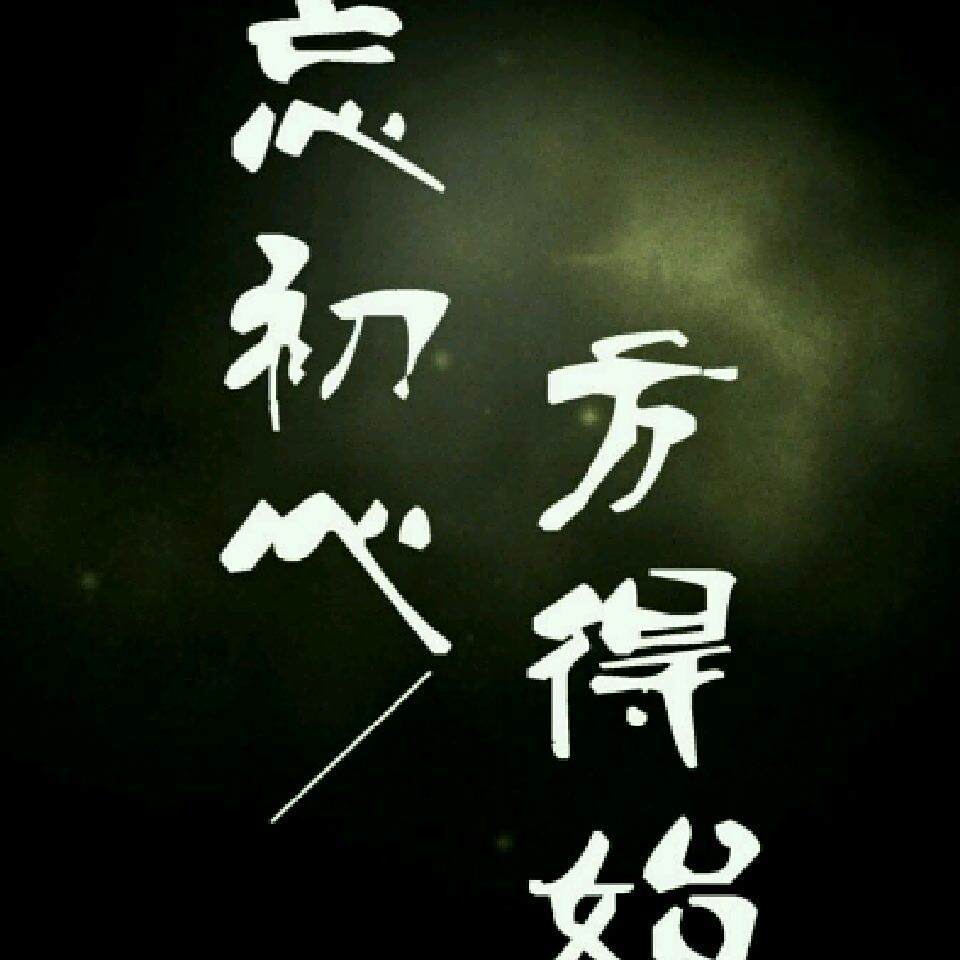 忘初心
方得始